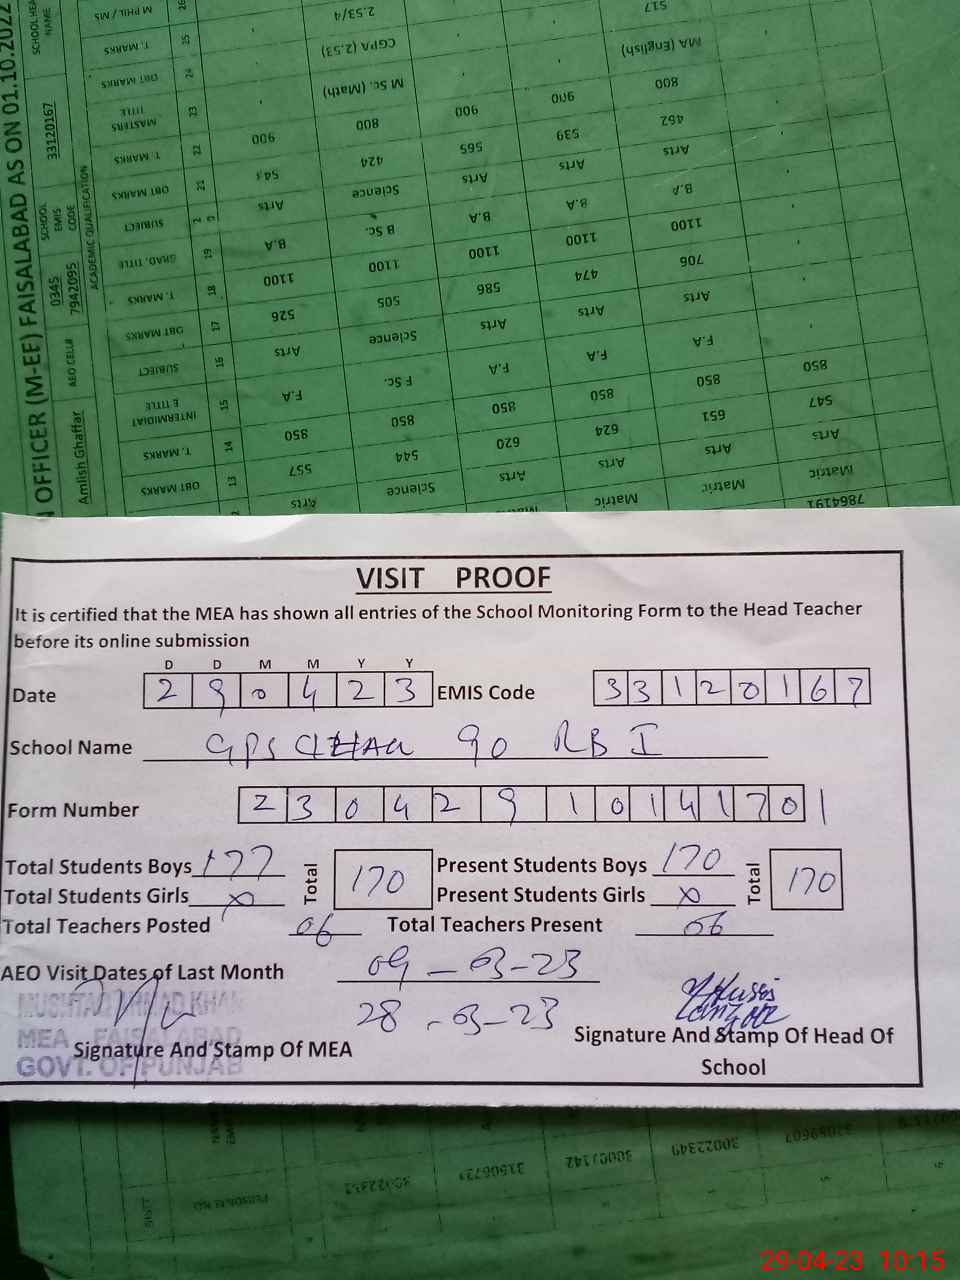 N OFFICER (M-EE) FAISALABAD AS ON 01.10.2022
Amlish Ghaffar AEO CELL# 0345 7942095 SCHOOL EMIS CODE 33120167 SCHOOL HEA NAME
ACADEMIC QUALIFICATION
OBT MARKS T. MARKS INTERMIDIAT E TITLE SUBJECT OBT MARKS T. MARKS GRAD. TITLE SUBJECT OBT MARKS T. MARKS MASTERS TITLE OBT MARKS T. MARKS M PHIL / MS
13 14 15 16 17 18 19 2 21 22 23 24 25 26
Arts 557 850 F.A Arts 526 1100 B.A Arts 900
Science 544 850 F Sc. Science 505 1100 B Sc. Science 424 800 M Sc. (Math) CGPA (2.53) 2.53/4
Arts 620 850 F.A Arts 586 1100 B.A Arts 565 900
Matric Arts 624 850 F.A Arts 474 1100 B.A Arts 539 900
Matric Arts 651 850 F.A Arts 706 1100 B.A Arts 462 800 MA (English) 517
7864191 Matric Arts 547 850
VISIT PROOF
It is certified that the MEA has shown all entries of the School Monitoring Form to the Head Teacher
before its online submission
D D M M Y Y
Date 2 9 0 4 2 3 EMIS Code 3 3 1 2 0 1 6 7
School Name GPS CHAK 90 RB I
Form Number 2 3 0 4 2 9 1 0 1 4 1 7 0 1
Total Students Boys 177 Total 170 Present Students Boys 170 Total 170
Total Students Girls x Present Students Girls x
Total Teachers Posted 06 Total Teachers Present 06
AEO Visit Dates of Last Month 09-03-23
28-03-23
MUSHTAQ AHMAD KHAN
MEA FAISALABAD
GOVT. OF PUNJAB
Signature And Stamp Of MEA
Signature And Stamp Of Head Of
School
PERSONAL NO
30022349
29-04-23 10:15